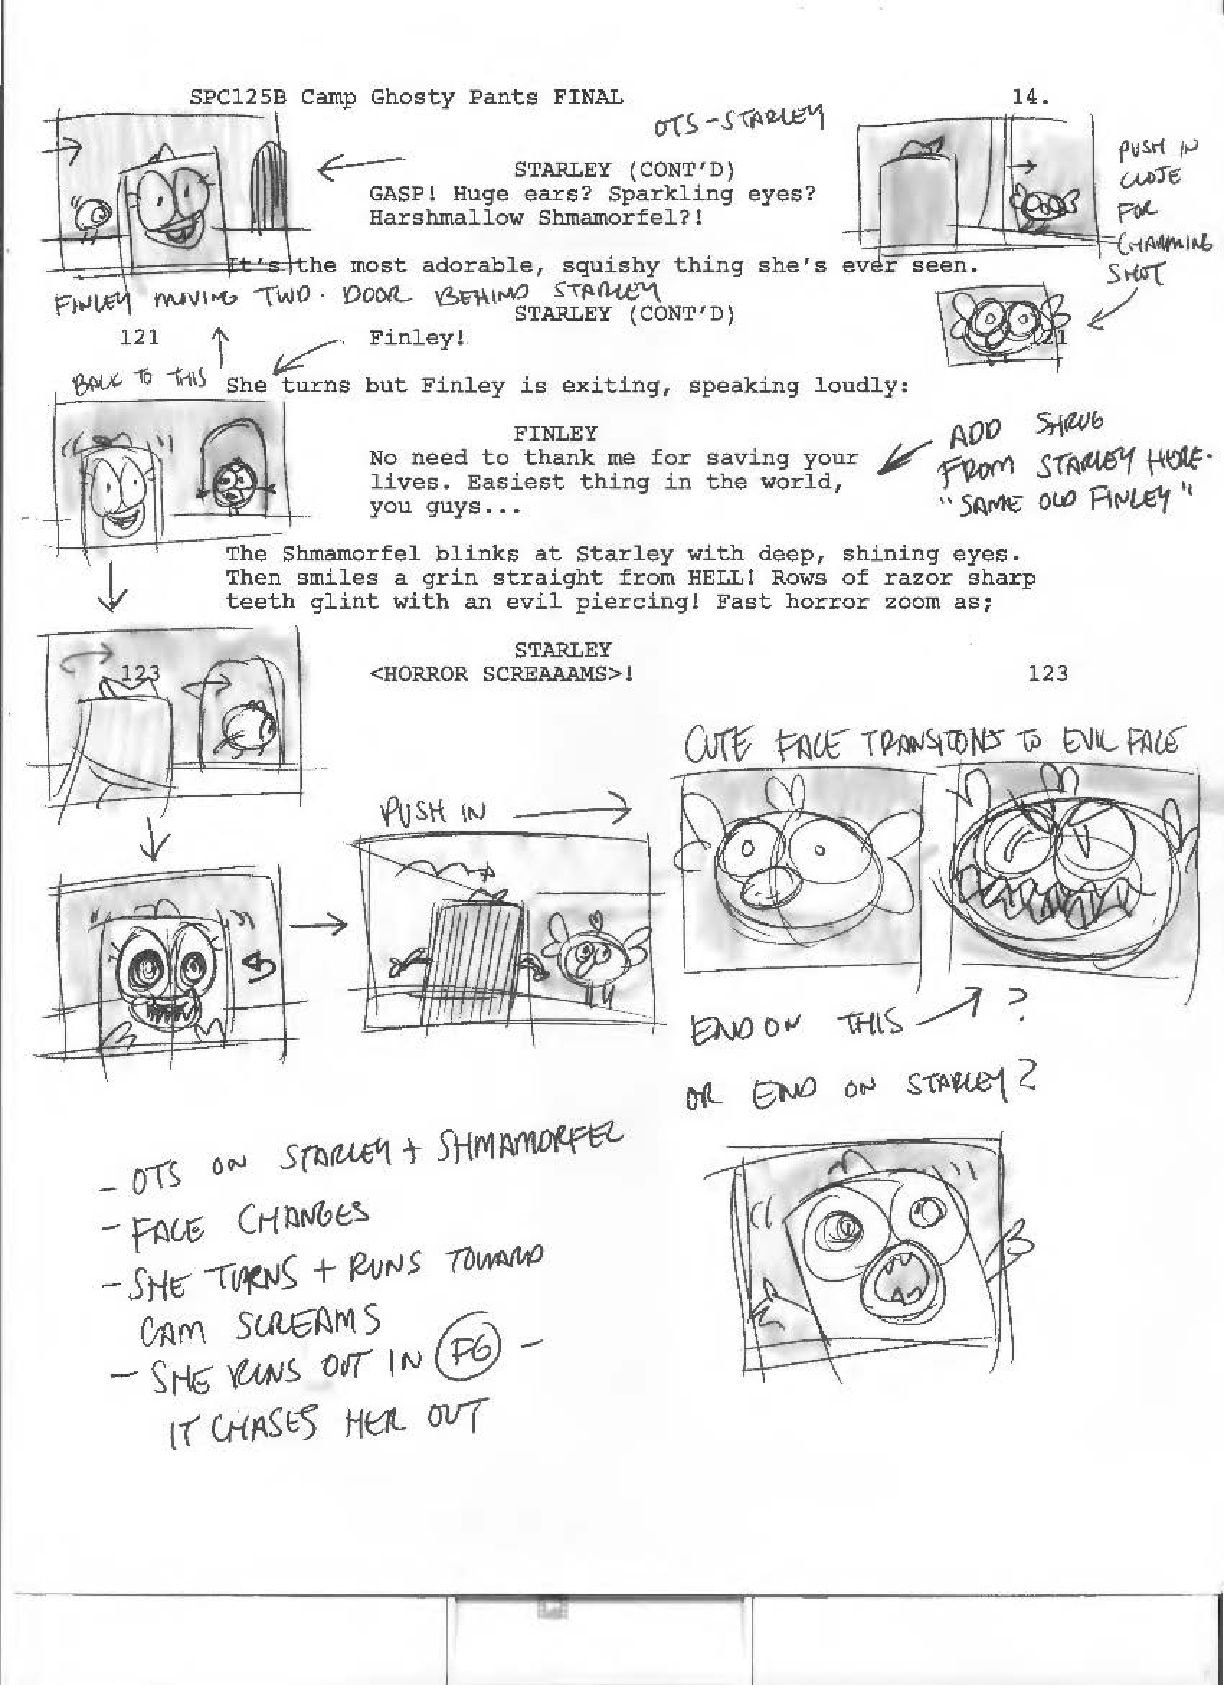 SPC125B Camp Ghosty Pants FINAL 14.
OTS-STARLEY
STARLEY (CONT'D)
GASP! Huge ears? Sparkling eyes?
Harshmallow Shmamorfel?!
PUSH IN
CLOSE
FOR
CHARMING
SHOT
It's the most adorable, squishy thing she's ever seen.
FINLEY MOVING TWO. DOOR BEHIND STARLEY
STARLEY (CONT'D)
121 Finley! 121
BACK TO THIS
She turns but Finley is exiting, speaking loudly:
FINLEY
No need to thank me for saving your
lives. Easiest thing in the world,
you guys...
ADD SHRUG
FROM STARLEY HERE.
"SAME OLD FINLEY"
The Shmamorfel blinks at Starley with deep, shining eyes.
Then smiles a grin straight from HELL! Rows of razor sharp
teeth glint with an evil piercing! Fast horror zoom as;
STARLEY
123 <HORROR SCREAAAMS>! 123
CUTE FACE TRANSITONS TO EVIL FACE
PUSH IN
END ON THIS ?
OR END ON STARLEY?
- OTS ON STARLEY + SHMAMORFEL
- FACE CHANGES
- SHE TURNS + RUNS TOWARD
CAM SCREAMS
- SHE RUNS OUT IN FG -
IT CHASES HER OUT